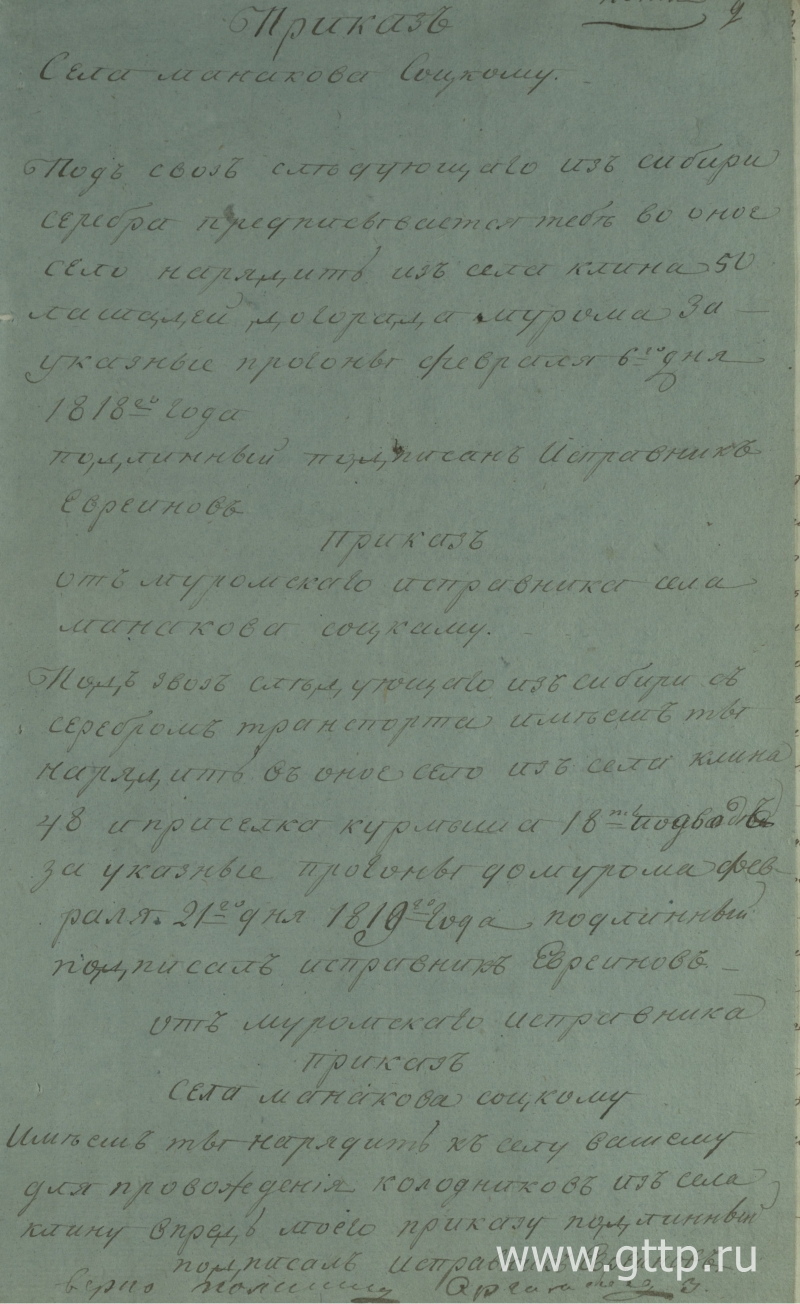 9
Приказъ
Села манакова Соцкому.
Подъ свозъ слѣдующаго изъ сибири
серебра предписывается тебѣ во оное
село нарядить изъ села клина 50
лашадей догорада мурома За
указные прогоны февраля 6го дня
1818го года
подлинный подписанъ Исправникъ
Евреиновъ
Приказъ
отъ муромскаго исправника села
манакова соцкаму.
Подъ звозъ слѣдующаго изъ сибири съ
серебромъ транспорта имѣешъ ты
нарядить въ оное село изъ села клина
48 и приселка курмыша 18ть подводъ
за указные прогоны домурома фев-
раля. 21го дня 1819го года подлинный
подписалъ исправникъ Евреиновъ
отъ муромскаго исправника
приказъ
села манакова соцкому
Имѣешъ ты нарядить къ селу вашему
для провожденія колодниковъ изъ села
клину впредь моего приказу подлинный
подписалъ
верно
www.gttp.ru